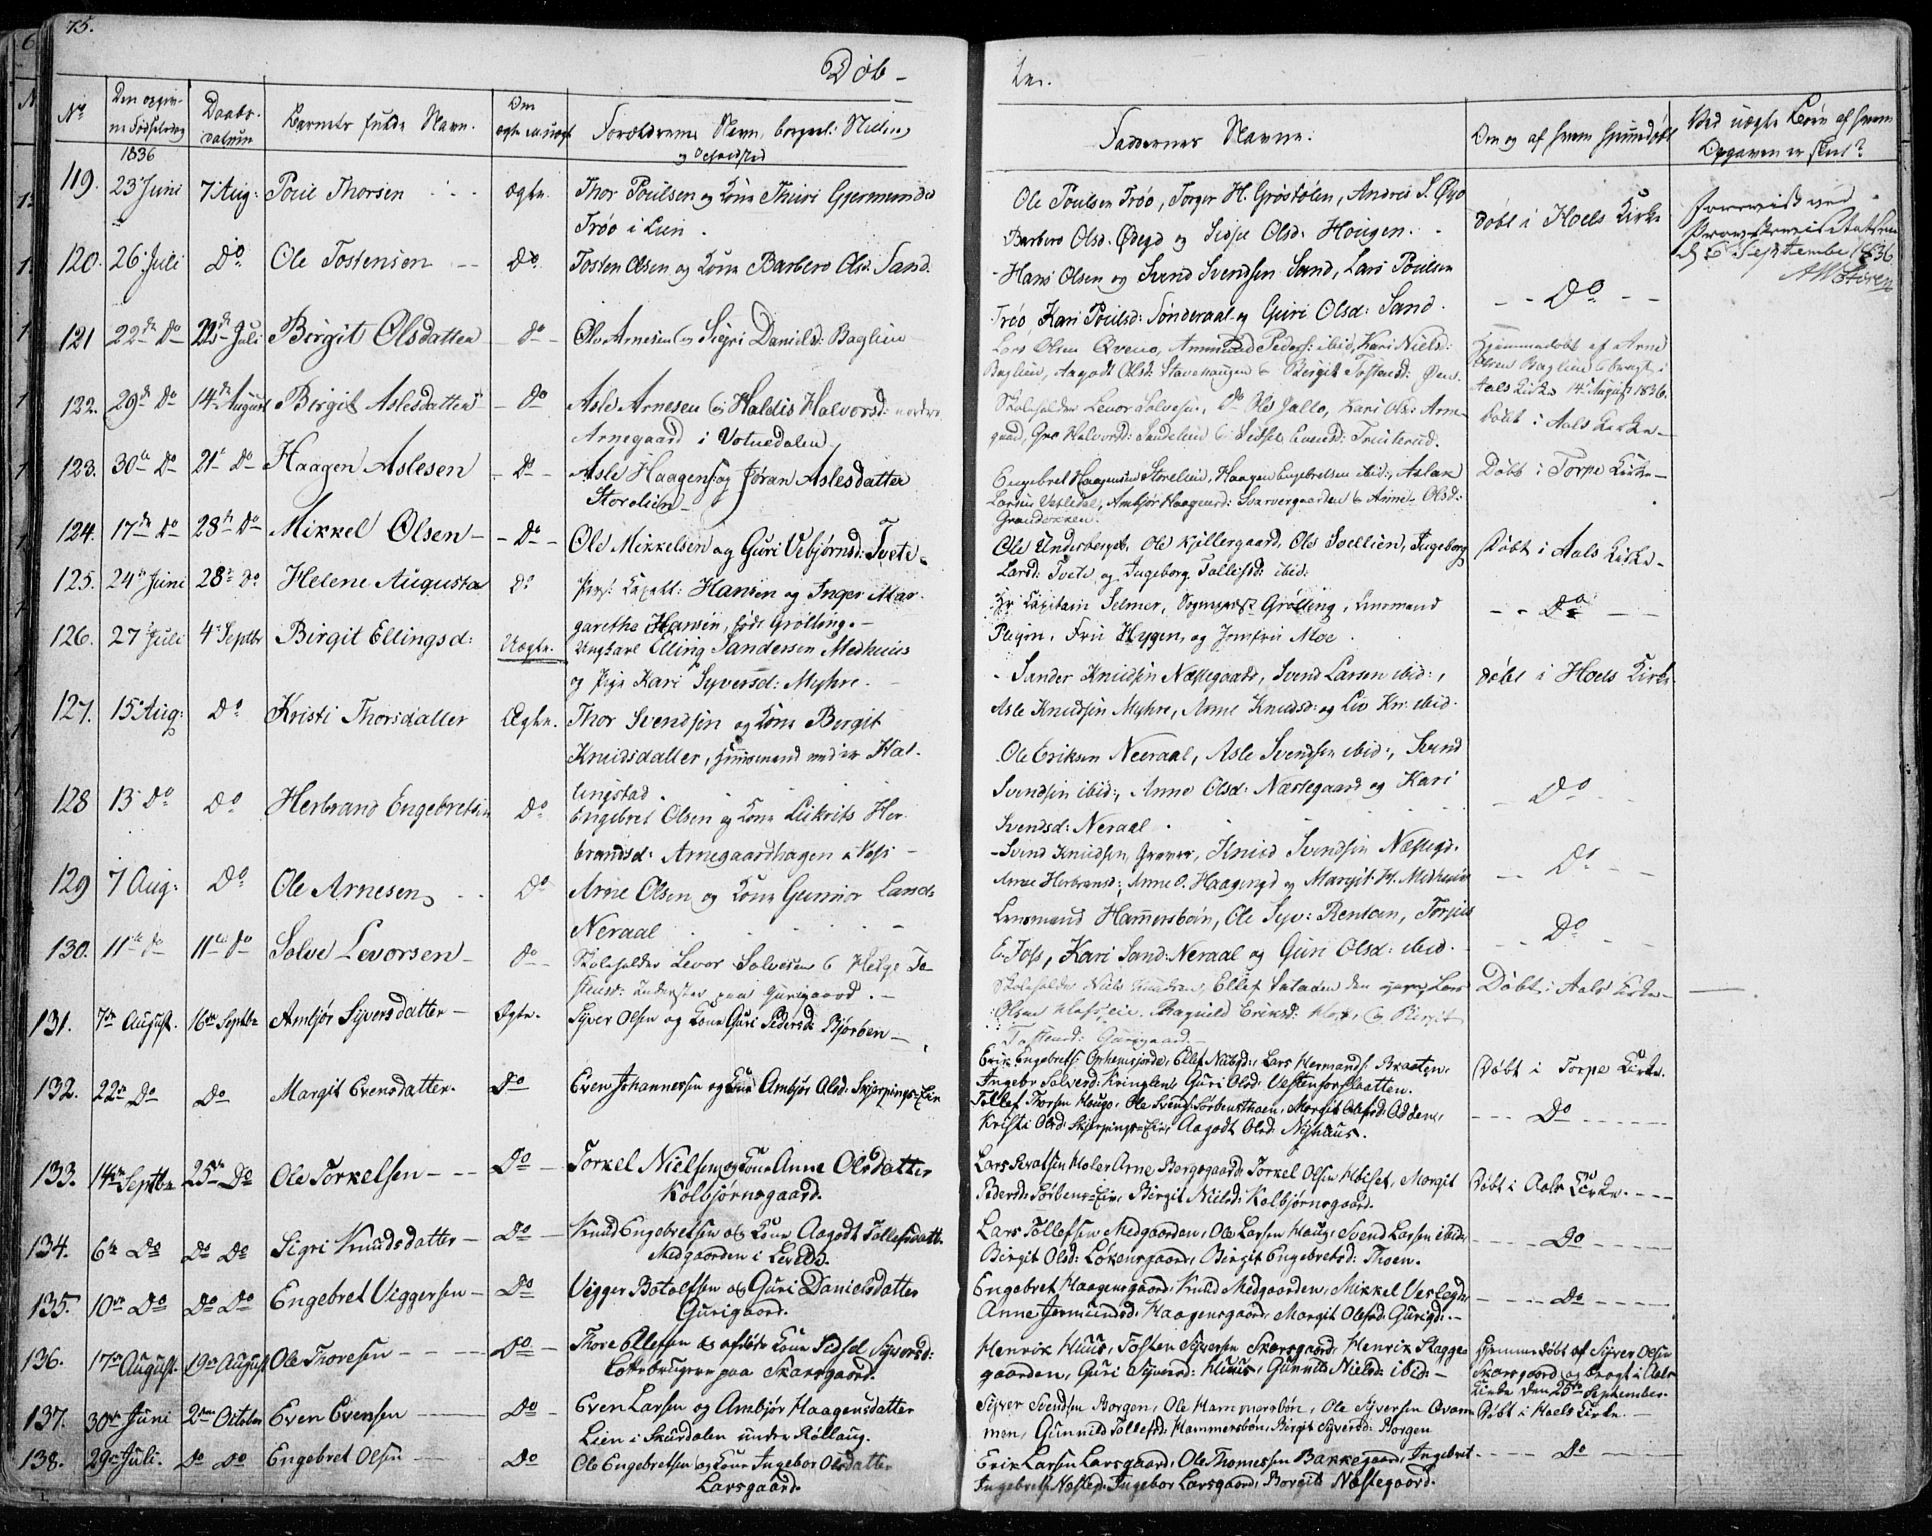 75.
Døb-
te.
No
Den opgiv-
ne Fødselsdag
Daabs-
datum
Barnets fulde Navn.
Om
ægte ell. uægt.
Forældrenes Navn, borgerl: Stilling
og Opholdsted
Faddernes Navne.
Om og af hvem hjemmedøbt
Ved uægte Børn af hvem
Opgaven er skeet?
1836
119. 23 Juni 7 Aug: Poul Thorsen ægte. Thor Poulsen og Kone Thuri Gjermunds
Trøo i Lien.
Ole Poulsen Trøo, Torger H. Grøstølen, Andris S. Øyo
Barbero Olsd. Ødegd og Sidsel Olsd: Hougen.
døbt i Hoels Kirke
6 Septembe 1836
120. 26 Juli Do Ole Tostensen Do Tosten Olsen og Kone Barbero Olsd. Sand.
Hans Olsen og Svend Svendsen Sand, Lars Poulsen
Trøo, Kari Poulsd: Sønderaal og Guri Olsd: Sand.
Do
121 22de Do 22de Juli Birgit Olsdatter Do Ole Arnesen og Sigri Daniels: Baglien
Lars Olsen Qveno, Ammund Peders: ibid, Kari Niels:
Baglien, Aagodt Olsd: Stavehougen & Birgit Tostensd:
Hjemmedøbt af Arne
Olsen Baglien & bragt i
Aals Kirke 14de August 1836.
122. 29de Do 14de August Birgit Aslesdatter Do Asle Arnesen og Haldis Halvorsd: nordre
Arnegaard i Votnedalen
Skoleholder Levor Solvesen, Do Ole Gallo, Kari Olsd: Arne-
gaard, Gro Halvorsd: Sundelien & Sidsel
døbt i Aals Kirke
123. 30te Do 21de Do Haagen Aslesen Do Asle Haagens: og Jøran Aslesdatter
Storelien
Engebret Haagensen Storelien, Haagen Engebretsen ibid:, Aslak
Larsen Vesledal, Ambjør Haagensd: Svarvergaarden & Arne Olsd:
Grøndokken.
Døbt i Torpe Kirke
124. 17de Do 28de Do Mikkel Olsen Do Ole Mikkelsen og Guri Vebjørnsd: Tvete
Ole Underberget, Ole Kjillergaard, Ole Svellien, Ingeborg
Larsd: Tvete og Ingeborg Tollefsd: ibid:
Døbt i Aals Kirke
125. 24de Juni 28de Do Helene Augusta Do Hansen og Inger Mar-
garethe Hansen, født Grølling.
Hr Kapitain Selmer, Grølling,
Fru Hygen, og Jomfru Moe.
Do
126. 27 Juli 4 Septbr Birgit Ellingsd: Uægte. Ungkarl Elling Sandersen Medhuus
og Pige Kari Syversd: Myhre.
Sander Knudsen Næsegaard, Svend Larsen ibid:,
Asle Knudsen Myhre, Anne Knudsd: og Liv Kn: ibid.
døbt i Hoels Kirke
127. 15 Aug: Do Kristi Thorsdatter Ægte. Thor Svendsen og Kone Birgit
Knudsdatter, Huusmand under Hal-
lingstad.
Ole Eriksen Neeraal, Asle Svendsen ibid:, Svend
Svendsen ibid:, Anne Olsd: Næstegaard og Kari
Svendsd: Neraal.
Do
128 13 Do Do Herbrand Engebretsen Do Engebret Olsen og Kone Liikrits Her-
brandsd: Arnegaardhagen
Svend Knudsen Graver, Knud Svendsen Næstegd.
Arne Herbrands:, Anne O. Haagengd og Margit H. Medhuus
Do
129 7 Aug: Do Ole Arnesen Do Arne Olsen og Kone Gunnor Lands
Neraal
Lensmand Hammersbøn, Ole Syv: Rentoen, Torjus
E. Foss, Kari Sand: Neraal og Guri Olsd: ibid.
Do
130. 11te Do 11te Do Solve Levorsen Do Skoleholder Levor Solvesen & Helge To-
stensd: paa Gurigaard.
Skoleholder Niels Knudsen, Ellef den Lars
Olsen Ragnild Eriksd: & Birgit
Tostensd: Gurigaard.
Døbt i Aals Kirke
131. 7de August. 16de Septbr Ambjør Syversdatter Ægte. Syver Olsen og Kone Guri Pedersd: Bjørben
Erik Engebrets: Ellef Nielsd:, Lars Hermands: Braaten,
Ingebr Solverd: Kringlen, Guri Olsd: Vestenforslaatten.
Døbt i Torpe Kirke.
132. 22de Do Do Margit Evensdatter. Do Even Johannessen og Kone Ambjør Olsd: Skjerpings-Eie
Tollef Thorsen Haugo, Ole Svends: Sørbensthoen, Margit Olsd: Odden,
Kristi Olsd: Skjerpings-Eie, Aagodt Olsd: Nyhuus.
Do
133. 14de Septbr 25de Do Ole Torkelsen Do Torkel Nielsen og Kone Anne Olsdatter
Kolbjørnsgaard.
Lars Sevatsen Holer, Arne Bergsgaard, Torkel Olsen Hoiset, Margit
Pedersd: Sørbens-Eie, Birgit Nielsd: Kolbjørnsgaard.
Døbt i Aals Kirke.
134. 6te Do Do Do Sigri Knudsdatter Do Knud Engebretsen og Kone Aagodt Tollefsdatt.
Medgaarden i Leveld.
Lars Tollefsen Medgaarden, Ole Larsen Haug, Svend Larsen ibid,
Birgit Olsd: Løkensgaard, Birgit Engebretsd: Thoen.
Do
135. 10de Do Do Do Engebret Viggersen Do Vigger Botolfsen og Guri Danielsdatter
Gurigaard.
Engebret Haagensgaard, Knud Medgaarden, Mikkel Veslegd,
Anne Jermundsd: Haagensgaard, Margit Olsd: Gurigd:
Do
136. 17de August. 19de August Ole Thoresen Do Thore Ellefsen og afløste Kone Sidsel Syversd:
Lottebrugere paa Skarsgaard.
Henrik Huus, Tosten Syversen Skarsgaard, Henrik Skagge-
gaarden, Guri Syversd: Huus, Gunnild Nielsd: ibid:
Hjemmedøbt af Syver Olsen
Skarsgaard og bragt i Aals
Kirke den 25de September.
137. 30te Juni 2den October Even Evensen Do Even Larsen og Ambjør Haagensdatter
Lien i Skurdalen under Rollaug.
Syver Svendsen Borgen, Ole Hammersbøn, Ole Syversen Qvam-
men, Gunnild Tollefsd: Hammersbøn, Birgit Syversd: Borgen
Døbt i Hoels Kirke.
138. 29de Juli. Do Do Engebret Olsen Do Ole Engebretsen og Kone Ingebor Olsdatter
Larsgaard.
Erik Larsen Larsgaard, Ole Thomessen Bakkegaard, Ingebret
Ingebrets: Næsteg: Ingebor Larsgaard, Borgit Næstegaard.
Do